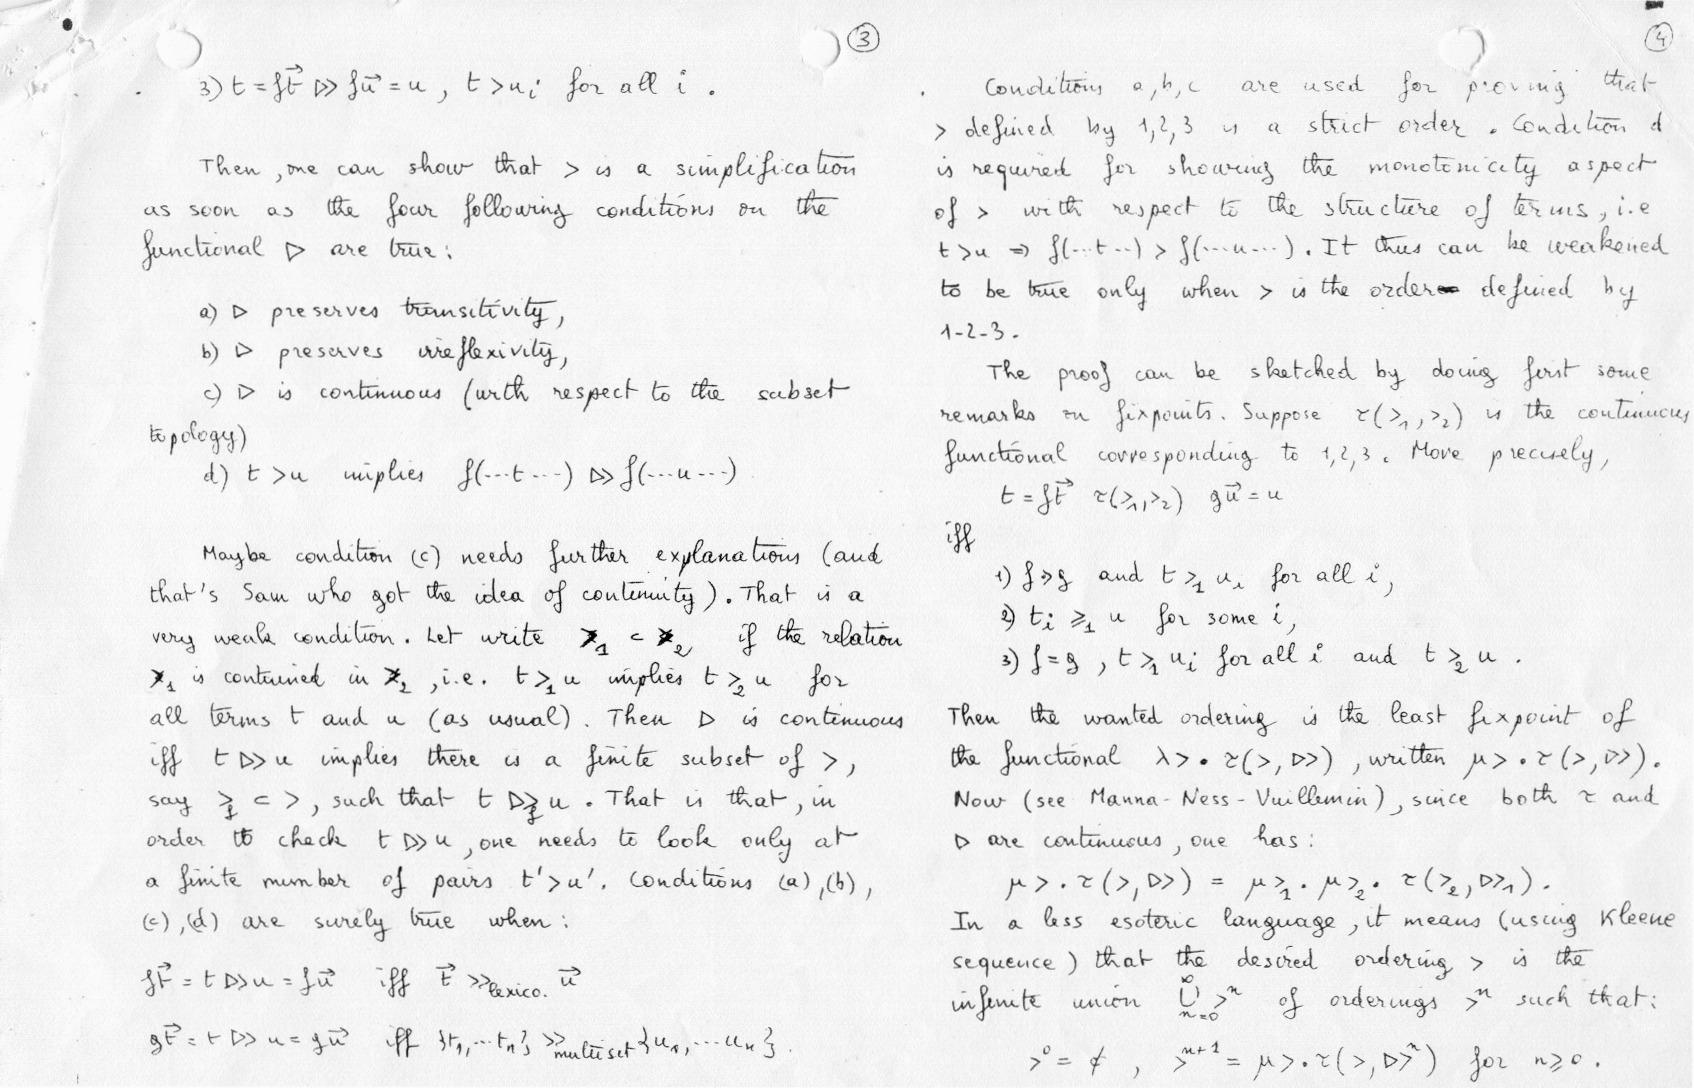 3
3) t = f t⃗ ▷> f u⃗ = u , t > u_i for all i .
Then , one can show that > is a simplification
as soon as the four following conditions on the
functional ▷ are true :
a) ▷ preserves transitivity,
b) ▷ preserves irreflexivity,
c) ▷ is continuous (with respect to the subset
topology)
d) t > u implies f(---t---) ▷> f(---u---)
Maybe condition (c) needs further explanations (and
that's Sam who got the idea of continuity). That is a
very weak condition. Let write >₁ ⊂ >₂ if the relation
>₁ is contained in >₂ , i.e. t >₁ u implies t >₂ u for
all terms t and u (as usual). Then ▷ is continuous
iff t ▷> u implies there is a finite subset of >,
say >_f ⊂ >, such that t ▷>_f u . That is that, in
order to check t ▷> u , one needs to look only at
a finite number of pairs t' > u'. Conditions (a),(b),
(c),(d) are surely true when :
f t⃗ = t ▷> u = f u⃗ iff t⃗ >>lexico. u⃗
g t⃗ = t ▷> u = g u⃗ iff {t₁, ... tₙ} >>multiset {u₁, ... uₙ} .
4
Conditions a, b, c are used for proving that
> defined by 1,2,3 is a strict order . Condition d
is required for showing the monotonicity aspect
of > with respect to the structure of terms , i.e
t > u ⇒ f(---t---) > f(---u---). It thus can be weakened
to be true only when > is the order defined by
1-2-3.
The proof can be sketched by doing first some
remarks on fixpoints. Suppose τ(>₁,>₂) is the continuous
functional corresponding to 1,2,3. More precisely,
t = f t⃗ τ(>₁,>₂) g u⃗ = u
iff
1) f > g and t >₁ u_i for all i,
2) t_i ⩾₁ u for some i,
3) f = g , t >₁ u_i for all i and t >₂ u .
Then the wanted ordering is the least fixpoint of
the functional λ>. τ(>,▷>) , written μ>. τ(>,▷>).
Now (see Manna-Ness-Vuillemin), since both τ and
▷ are continuous, one has :
μ>. τ(>,▷>) = μ>₁. μ>₂. τ(>₂,▷>₁).
In a less esoteric language, it means (using Kleene
sequence) that the desired ordering > is the
infinite union ∪_{n=0}^∞ >ⁿ of orderings >ⁿ such that :
>⁰ = ∅ , >ⁿ⁺¹ = μ>. τ(>,▷>ⁿ) for n ⩾ 0 .